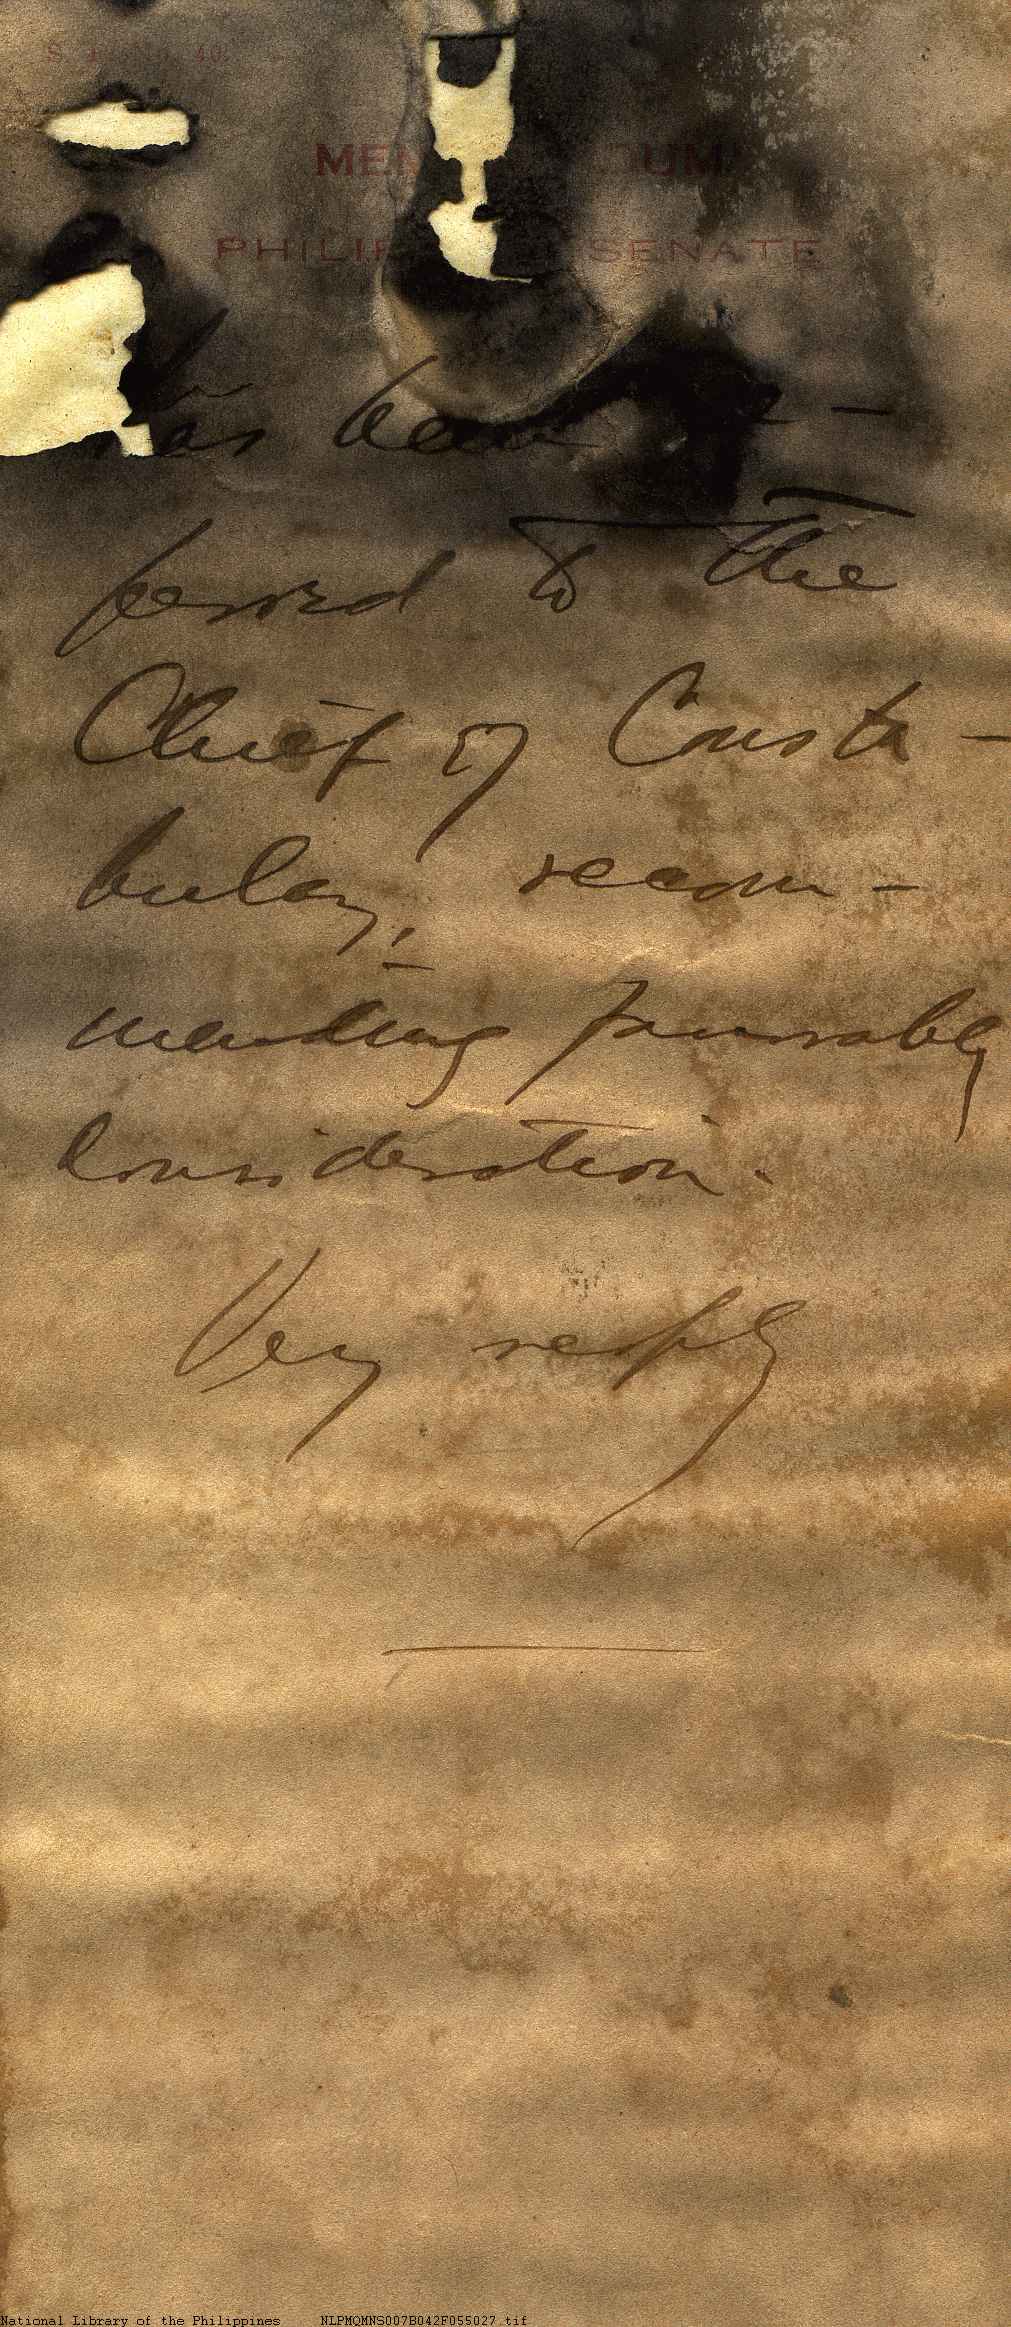 MEMORANDUM
PHILIPPINE SENATE
has been re-
ferred to the
Chief of Consta-
bulary, recom-
mending favorably
consideration.
Very resply
National Library of the Philippines NLPMQMNS007B042F055027.tif